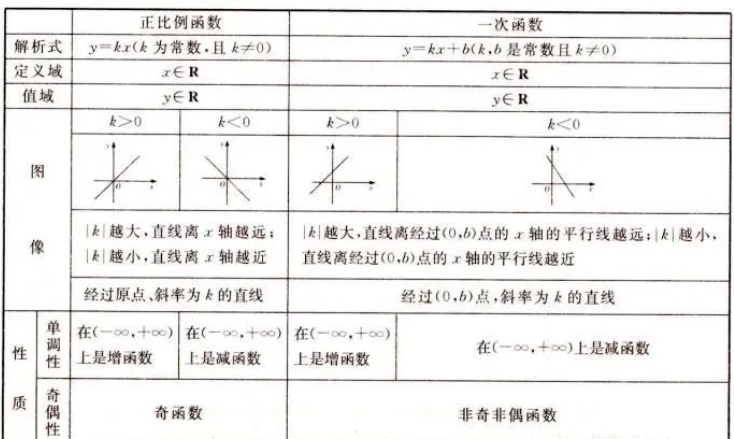 正比例函数 一次函数
解析式 y=kx(k 为常数,且 k≠0) y=kx+b(k,b 是常数且 k≠0)
定义域 x∈R x∈R
值域 y∈R y∈R
图像
k>0 k<0 k>0 k<0
y y y y
O x O x O x O x
|k|越大,直线离 x 轴越远;
|k|越小,直线离 x 轴越近
|k|越大,直线离经过(0,b)点的 x 轴的平行线越远;|k|越小,
直线离经过(0,b)点的 x 轴的平行线越近
经过原点、斜率为 k 的直线 经过(0,b)点,斜率为 k 的直线
性质
单调性
在(-∞,+∞)
上是增函数
在(-∞,+∞)
上是减函数
在(-∞,+∞)
上是增函数
在(-∞,+∞)上是减函数
奇偶性
奇函数 非奇非偶函数